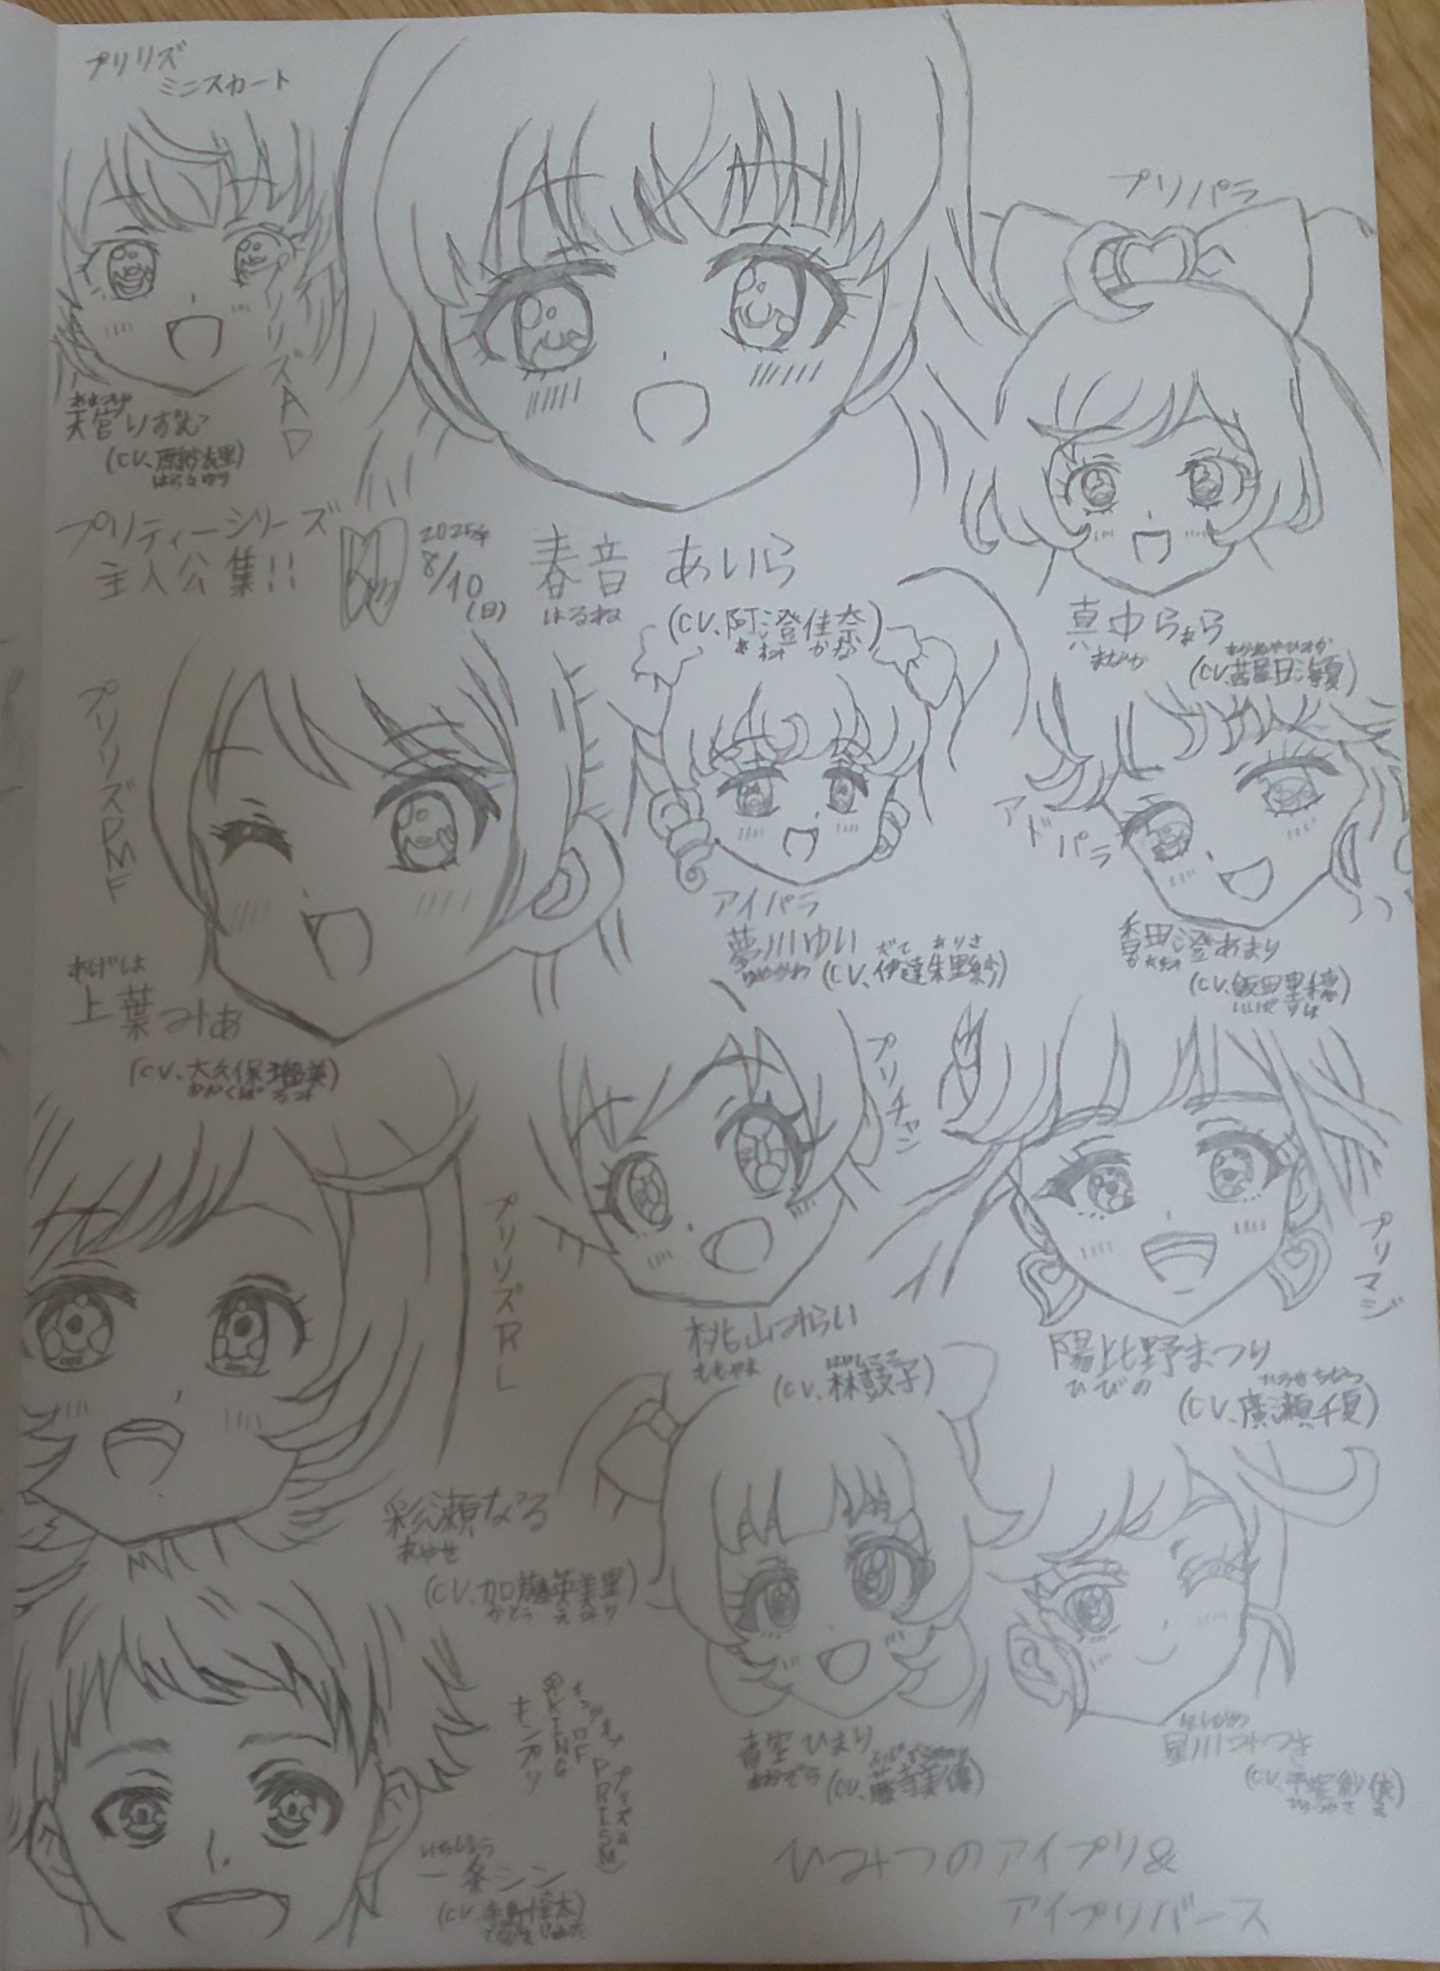 プリリズ
ミニスカート
プリパラ
プリリズAD
天宮りずむ
(CV.原紗友里)
はらさゆり
プリティーシリーズ
主人公集!!
2025年
8/10
(日)
春音 あいら
はるね
(CV.阿澄佳奈)
あすみ かな
真中らぁら
まなか
(CV.茜屋日海夏)
プリリズDMF
あげは
上葉みあ
(CV.大久保瑠美)
おおくぼ るみ
アイパラ
夢川ゆい
ゆめかわ
だて ありさ
(CV.伊達朱里紗)
アドパラ
香田澄あまり
かすみ
(CV.飯田里穂)
いいだ りほ
プリチャン
桃山みらい
ももやま
はやしここ
(CV.林鼓子)
プリマジ
陽比野まつり
ひびの
ひろせ ちなつ
(CV.廣瀬千夏)
プリリズRL
彩瀬なる
あやせ
(CV.加藤英美里)
かとう えみり
キンプリ
(KING OF PRISM)
いちじょう
一条シン
(CV.寺島惇太)
てらしまじゅんた
青空ひまり
あおぞら
(CV.藤寺美徳)
星川みつき
(CV.平塚紗依)
ひらつか さえ
ひみつのアイプリ&
アイプリバース